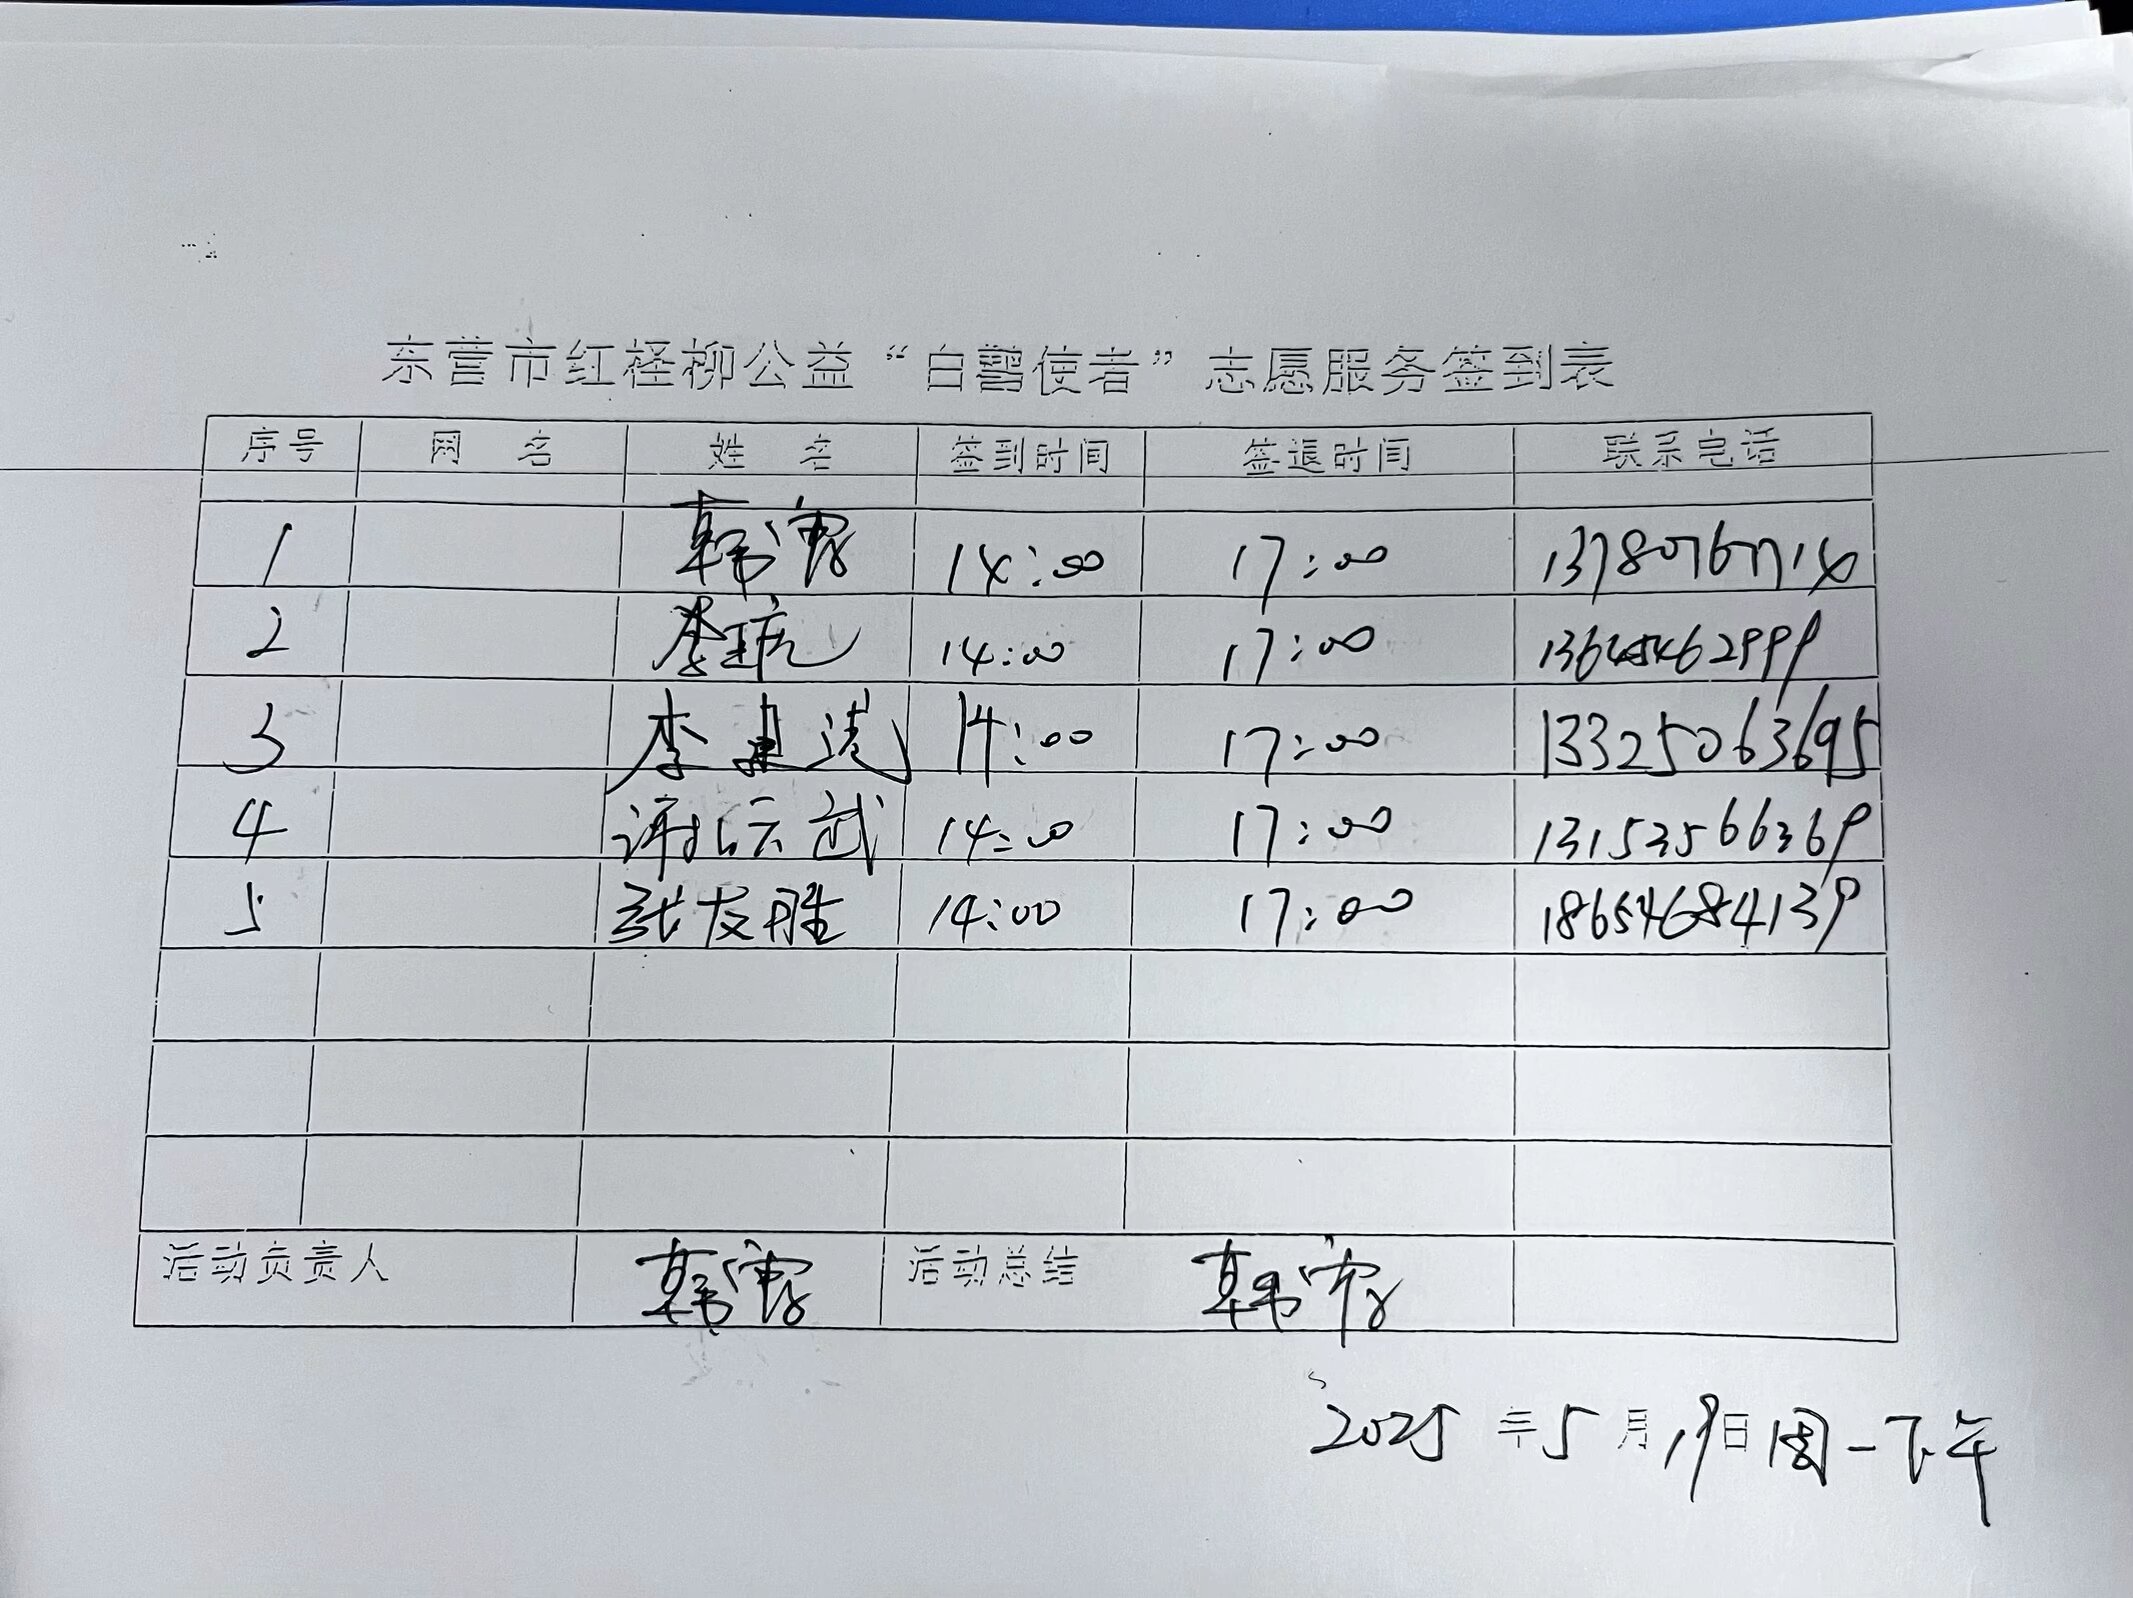 东营市红柽柳公益“白鹭使者”志愿服务签到表
序号 网名 姓名 签到时间 签退时间 联系电话
1 韩 14:00 17:00
2 李 14:00 17:00
3 李建 14:00 17:00 13325063695
4 许 云武 14:00 17:00 13153566369
5 张友胜 14:00 17:00 18654684139
活动负责人 韩 活动总结 韩
2025年5月19日周一下午